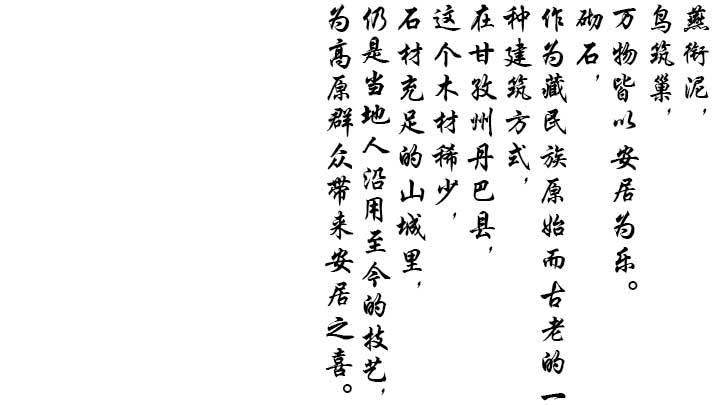 燕衔泥，
鸟筑巢，
万物皆以安居为乐。
砌石，
作为藏民族原始而古老的一
种建筑方式，
在甘孜州丹巴县，
这个木材稀少，
石材充足的山城里，
仍是当地人沿用至今的技艺，
为高原群众带来安居之喜。